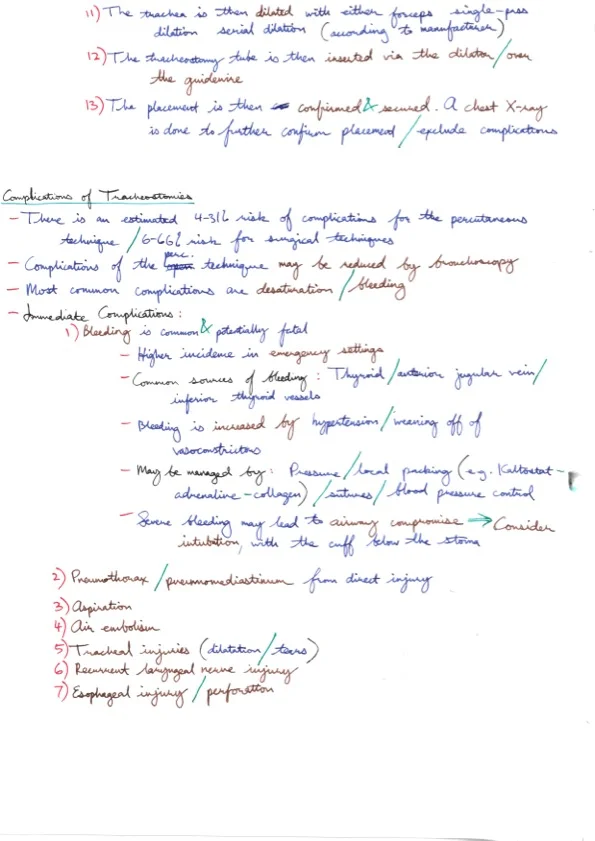 11) The trachea is then dilated with either forceps single-pass
dilation serial dilation (according to manufacturer)
12) The tracheostomy tube is then inserted via the dilator / over
the guidewire
13) The placement is then confirmed & secured. A chest X-ray
is done to further confirm placement / exclude complications
Complications of Tracheostomies
- There is an estimated 4-31% risk of complications for the percutaneous
technique / 6-66% risk for surgical techniques
- Complications of the perc. technique may be reduced by bronchoscopy
- Most common complications are desaturation / bleeding
- Immediate Complications:
1) Bleeding is common & potentially fatal
- Higher incidence in emergency settings
- Common sources of bleeding: Thyroid / anterior jugular vein /
inferior thyroid vessels
- Bleeding is increased by hypertension / weaning off of
vasoconstrictors
- May be managed by: Pressure / local packing (e.g. Kaltostat -
adrenaline - collagen) / sutures / blood pressure control
- Severe bleeding may lead to airway compromise → Consider
intubation, with the cuff below the stoma
2) Pneumothorax / pneumomediastinum from direct injury
3) Aspiration
4) Air embolism
5) Tracheal injuries (dilatation / tears)
6) Recurrent laryngeal nerve injury
7) Esophageal injury / perforation